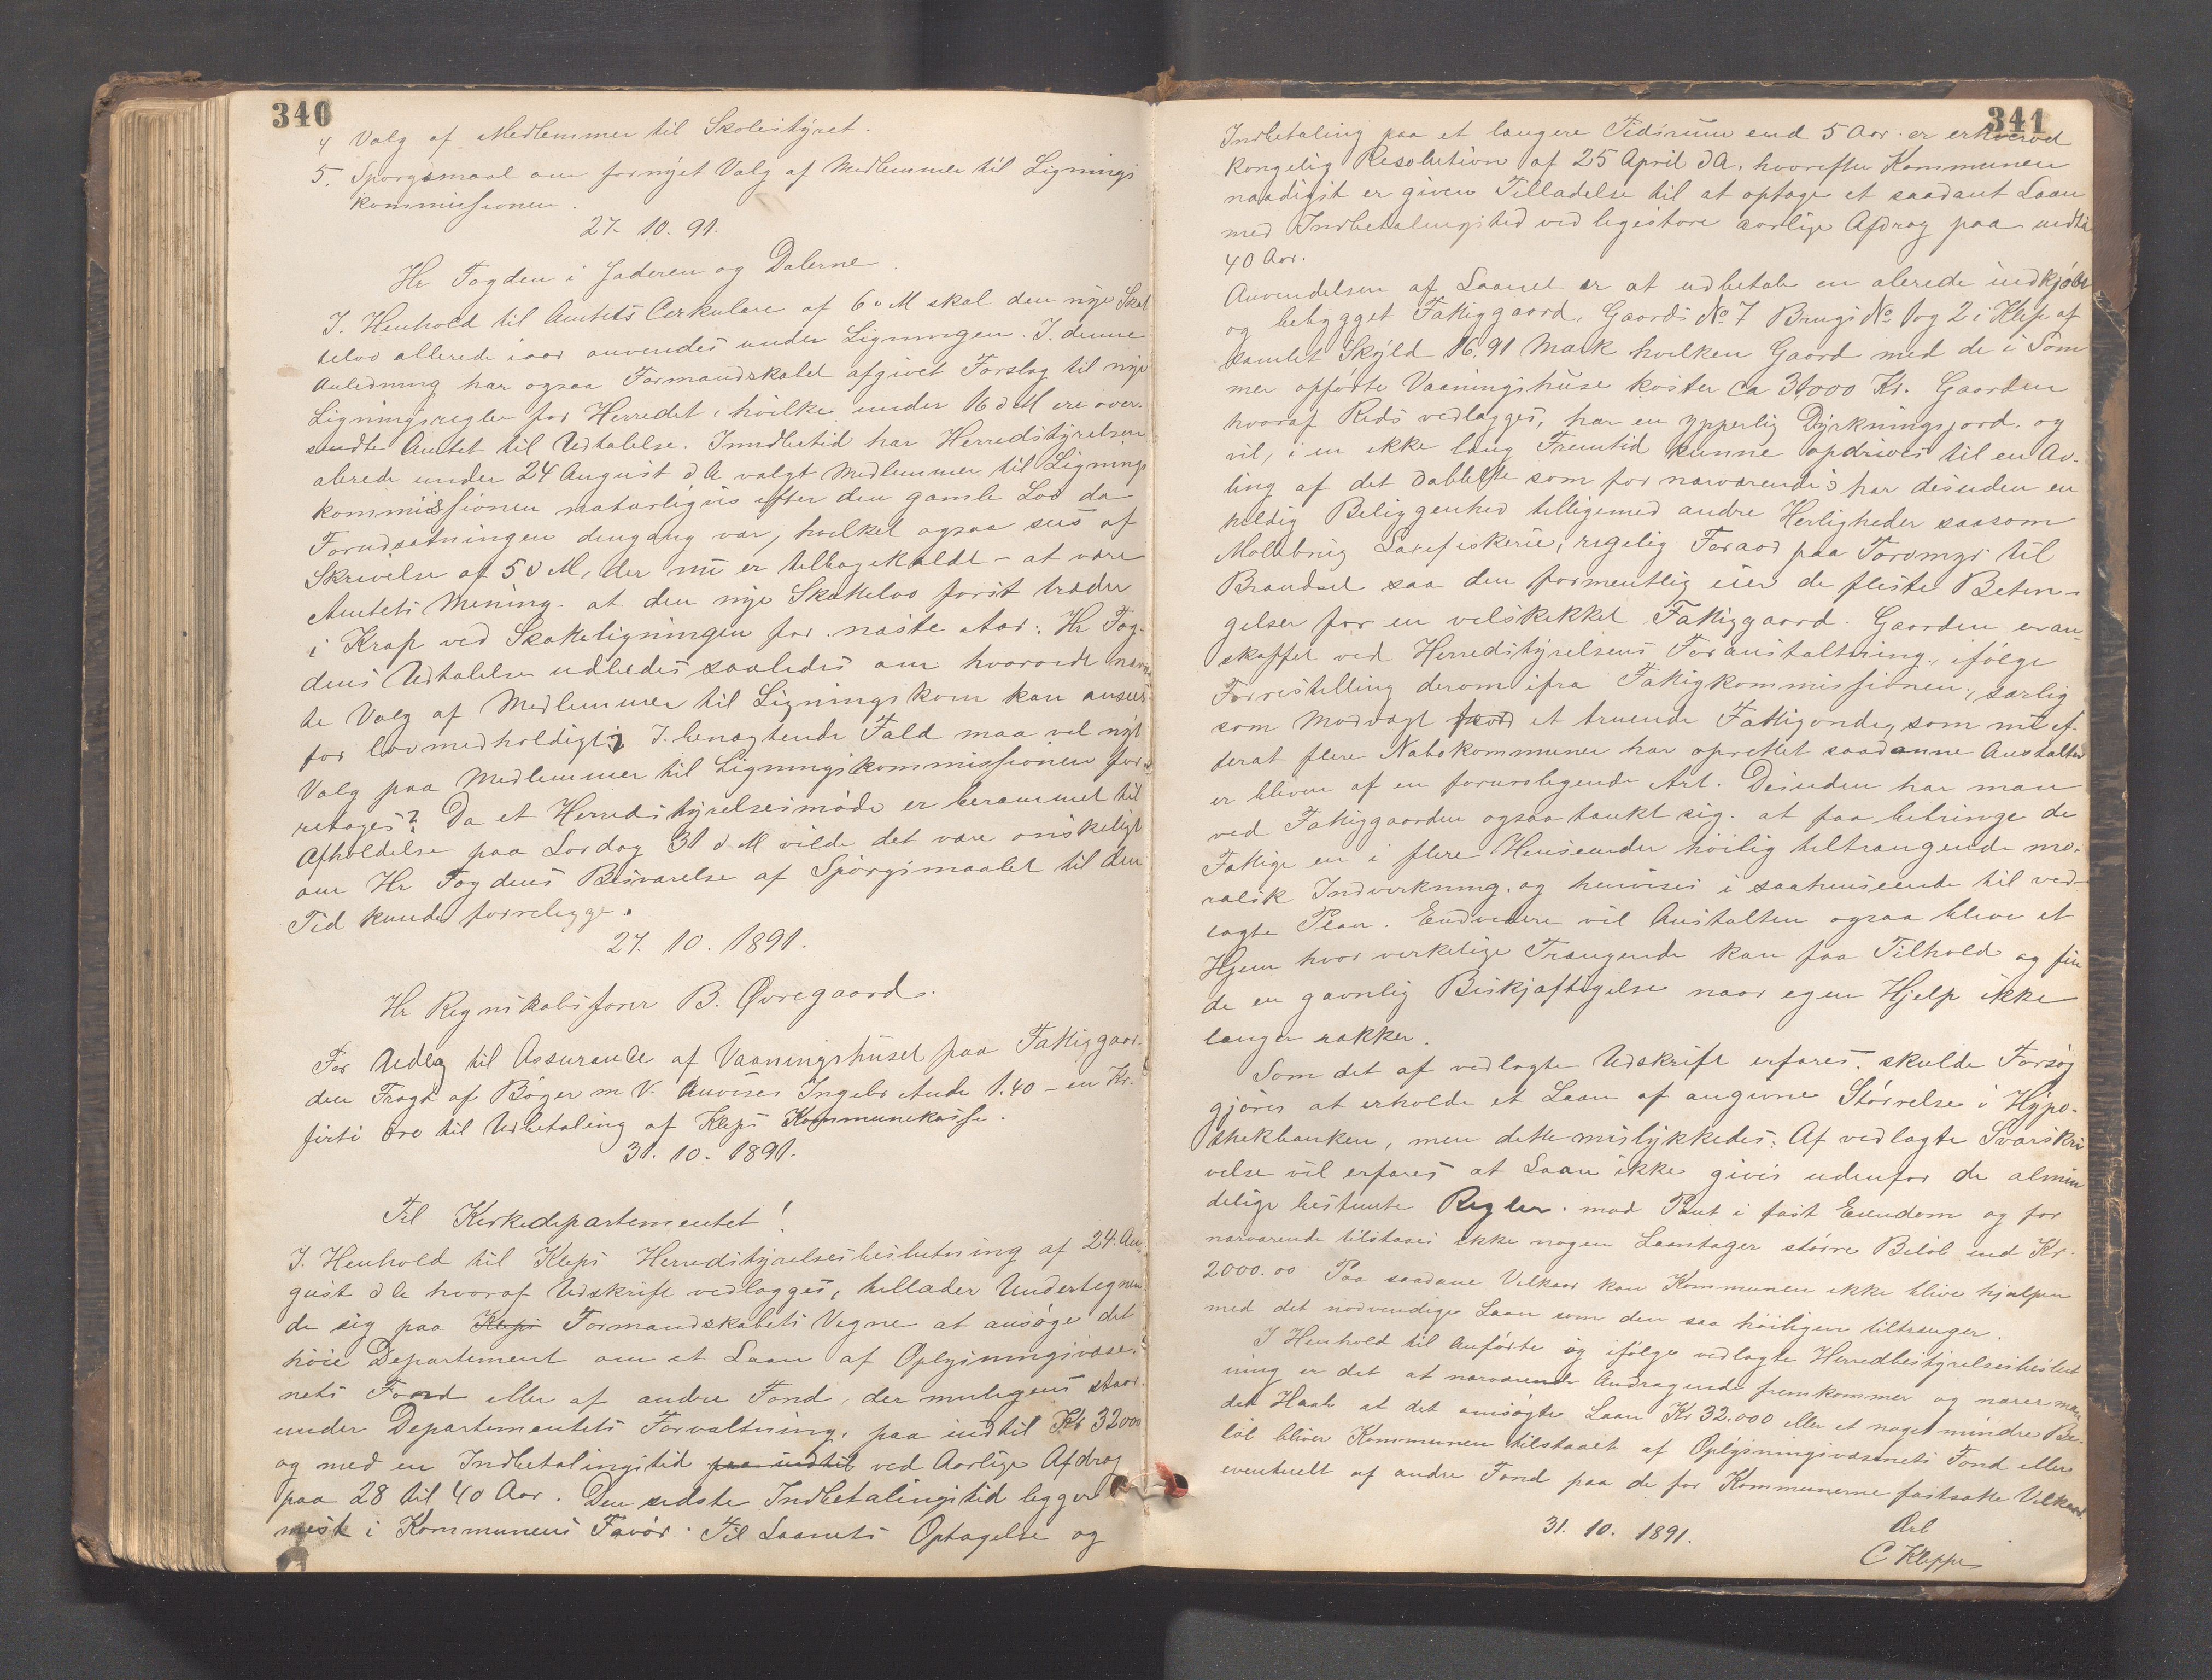 340
4 Valg af Medlemmer til Skolestyret.
5. Spørgsmaal om fornyet Valg af Medlemmer til Lignings
kommissionen.
27. 10. 91.
Hr Fogden i Jæderen og Dalerne.
I Henhold til Amtets Cirkulære af 6 d M skal den nye Skat
telov allerede iaar anvendes under Ligningen. I denne
Anledning har ogsaa Formandskabet afgivet Forslag til nye
Ligningsregler for Herredet, hvilke under 16 d M ere over-
sendte Amtet til Udtalelse. Imidlertid har Herredstyrelsen
allerede under 24 August d A valgt Medlemmer til Lignings
kommissionen naturligvis efter den gamle Lov da
Forudsætningen dengang var, hvilket ogsaa sees af
Skrivelse af 5 d M, der nu er tilbagekaldt - at være
Amtets Mening - at den nye Skattelov først træder
i Kraft ved Skatteligningen for næste Aar. Hr Fog-
dens Udtalelse udbedes saaledes om hvorvidt nævn
te Valg af Medlemmer til Ligningskom kan ansees
for lovmedholdigt? I benægtende Fald maa vel nyt
Valg paa Medlemmer til Ligningskommissionen fore-
retages? Da et Herredstyrelsesmøde er berammet til
Afholdelse paa Lørdag 31 d M vilde det være ønskeligt
om Hr Fogdens Besvarelse af Spørgsmaalet til den
Tid kunde forreligge.
27. 10. 1891.
Hr Regnskabsfører B. Øvregaard.
For Udlæg til Assurance af Vaaningshuset paa Fattiggaar-
den Fragt af Bøger m V. Anvises Ingebr Aude 1.40 - en Kr.
firti øre til Udbetaling af Kleps Kommunekasse.
31. 10. 1891.
Til Kirkedepartementet!
I Henhold til Kleps Herredstyrelsesbeslutning af 24. Au-
gust d A hvoraf Udskrift vedlægges, tillader Undertegne
de sig paa Kleps Formandskabets Vegne at ansøge det
høie Departement om et Laan af Oplysningsvæse-
nets Fond eller af andre Fond, der muligens staar
under Departementets Forvaltning, paa indtil Kr 32000
og med en Indbetalingstid paa indtil ved Aarlige Afdrag
paa 28 til 40 Aar. Den sidste Indbetalingstid ligger
mest i Kommunens Favør. Til Laanets Optagelse og
341
Indbetaling paa et længere Tidsrum end 5 Aar er erhvervd
kongelig Resolution af 25 April d A. hvorefter Kommunen
naadigst er given Tilladelse til at optage et saadant Laan
med Indbetalingstid ved ligestore aarlige Afdrag paa indtil
40 Aar.
Anvendelsen af Laanet er at udbetale en alerede indkjøbt
og bebygget Fattiggaard, Gaards No 7 Brugs No 1 og 2 i Klep af
samlet Skyld 16,91 Mark hvilken Gaard med de i Som
mer opførte Vaaningshuse koster ca 31000 Kr. Gaarden
hvoraf Rids vedlægges, har en ypperlig Dyrkningsjord, og
vil, i en ikke lang Fremtid kunne opdrives til en Av-
ling af det dobbelte som for nærværende, har desuden en
heldig Beliggenhed tilligemed andre Herligheder saasom
Møllebrug Laxefiskerie, rigelig Foraad paa Torvmyr til
Brændsel saa den formentlig eier de fleste Betin-
gelser for en velskikket Fattiggaard. Gaarden er an-
skaffet ved Herredstyrelsens Foranstaltning, ifølge
Forrestilling derom ifra Fattigkommissionen, særlig
som Modvægt  et truende Fattigonde, som nu ef-
terat flere Nabokommuner har oprettet saadanne Anstalter
er bleven af en foruroligende Art. Desuden har man
ved Fattiggaarden ogsaa tænkt sig at faa bibringe de
Fattige en i flere Henseender høilig tiltrængende mo-
ralsk Indvirkning, og henvises i saahenseende til ved-
lagte Plan. Endvidere vil Anstalten ogsaa blive et
Hjem hvor virkelige Trængende kan faa Tilhold og fin
de en gavnlig Beskjæftigelse naar egen Hjelp ikke
længer rækker.
Som det af vedlagte Udskrift erfares, skulde Forsøg
gjøres at erholde et Laan af angivne Størrelse i Hypo-
thekbanken, men dette mislykkedes. Af vedlagte Svarskri
velse vil erfares at Laan ikke gives udenfor de almin
delige bestemte Regler. mod Pant i fast Eiendom og for
nærværende tilstaaes ikke nogen Laantager større Beløb end Kr.
2000.00 Paa saadane Vilkaar kan Kommunen ikke blive hjulpen
med det nødvendige Laan som den saa høiligen tiltrænger.
I Henhold til Anførte og ifølge vedlagte Herredbestyrelsesbeslut
ning er det at nærværende Andragende fremkommer og nærer man
det Haab at det ansøgte Laan Kr 32.000 eller et noget mindre Be-
løb bliver Kommunen tilstaaet af Oplysningsvæsenets Fond eller
eventuelt af andre Fond paa de for Kommunerne fastsatte Vilkaar.
31. 10. 1891.
Ærb
C Kleppe